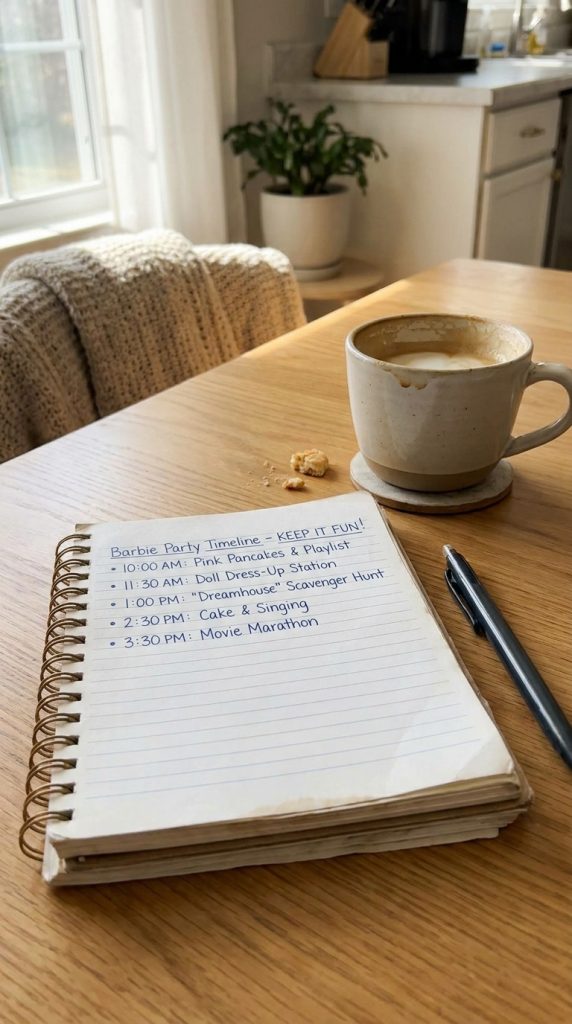 Barbie Party Timeline - KEEP IT FUN!
• 10:00 AM: Pink Pancakes & Playlist
• 11:30 AM: Doll Dress-Up Station
• 1:00 PM: "Dreamhouse" Scavenger Hunt
• 2:30 PM: Cake & Singing
• 3:30 PM: Movie Marathon